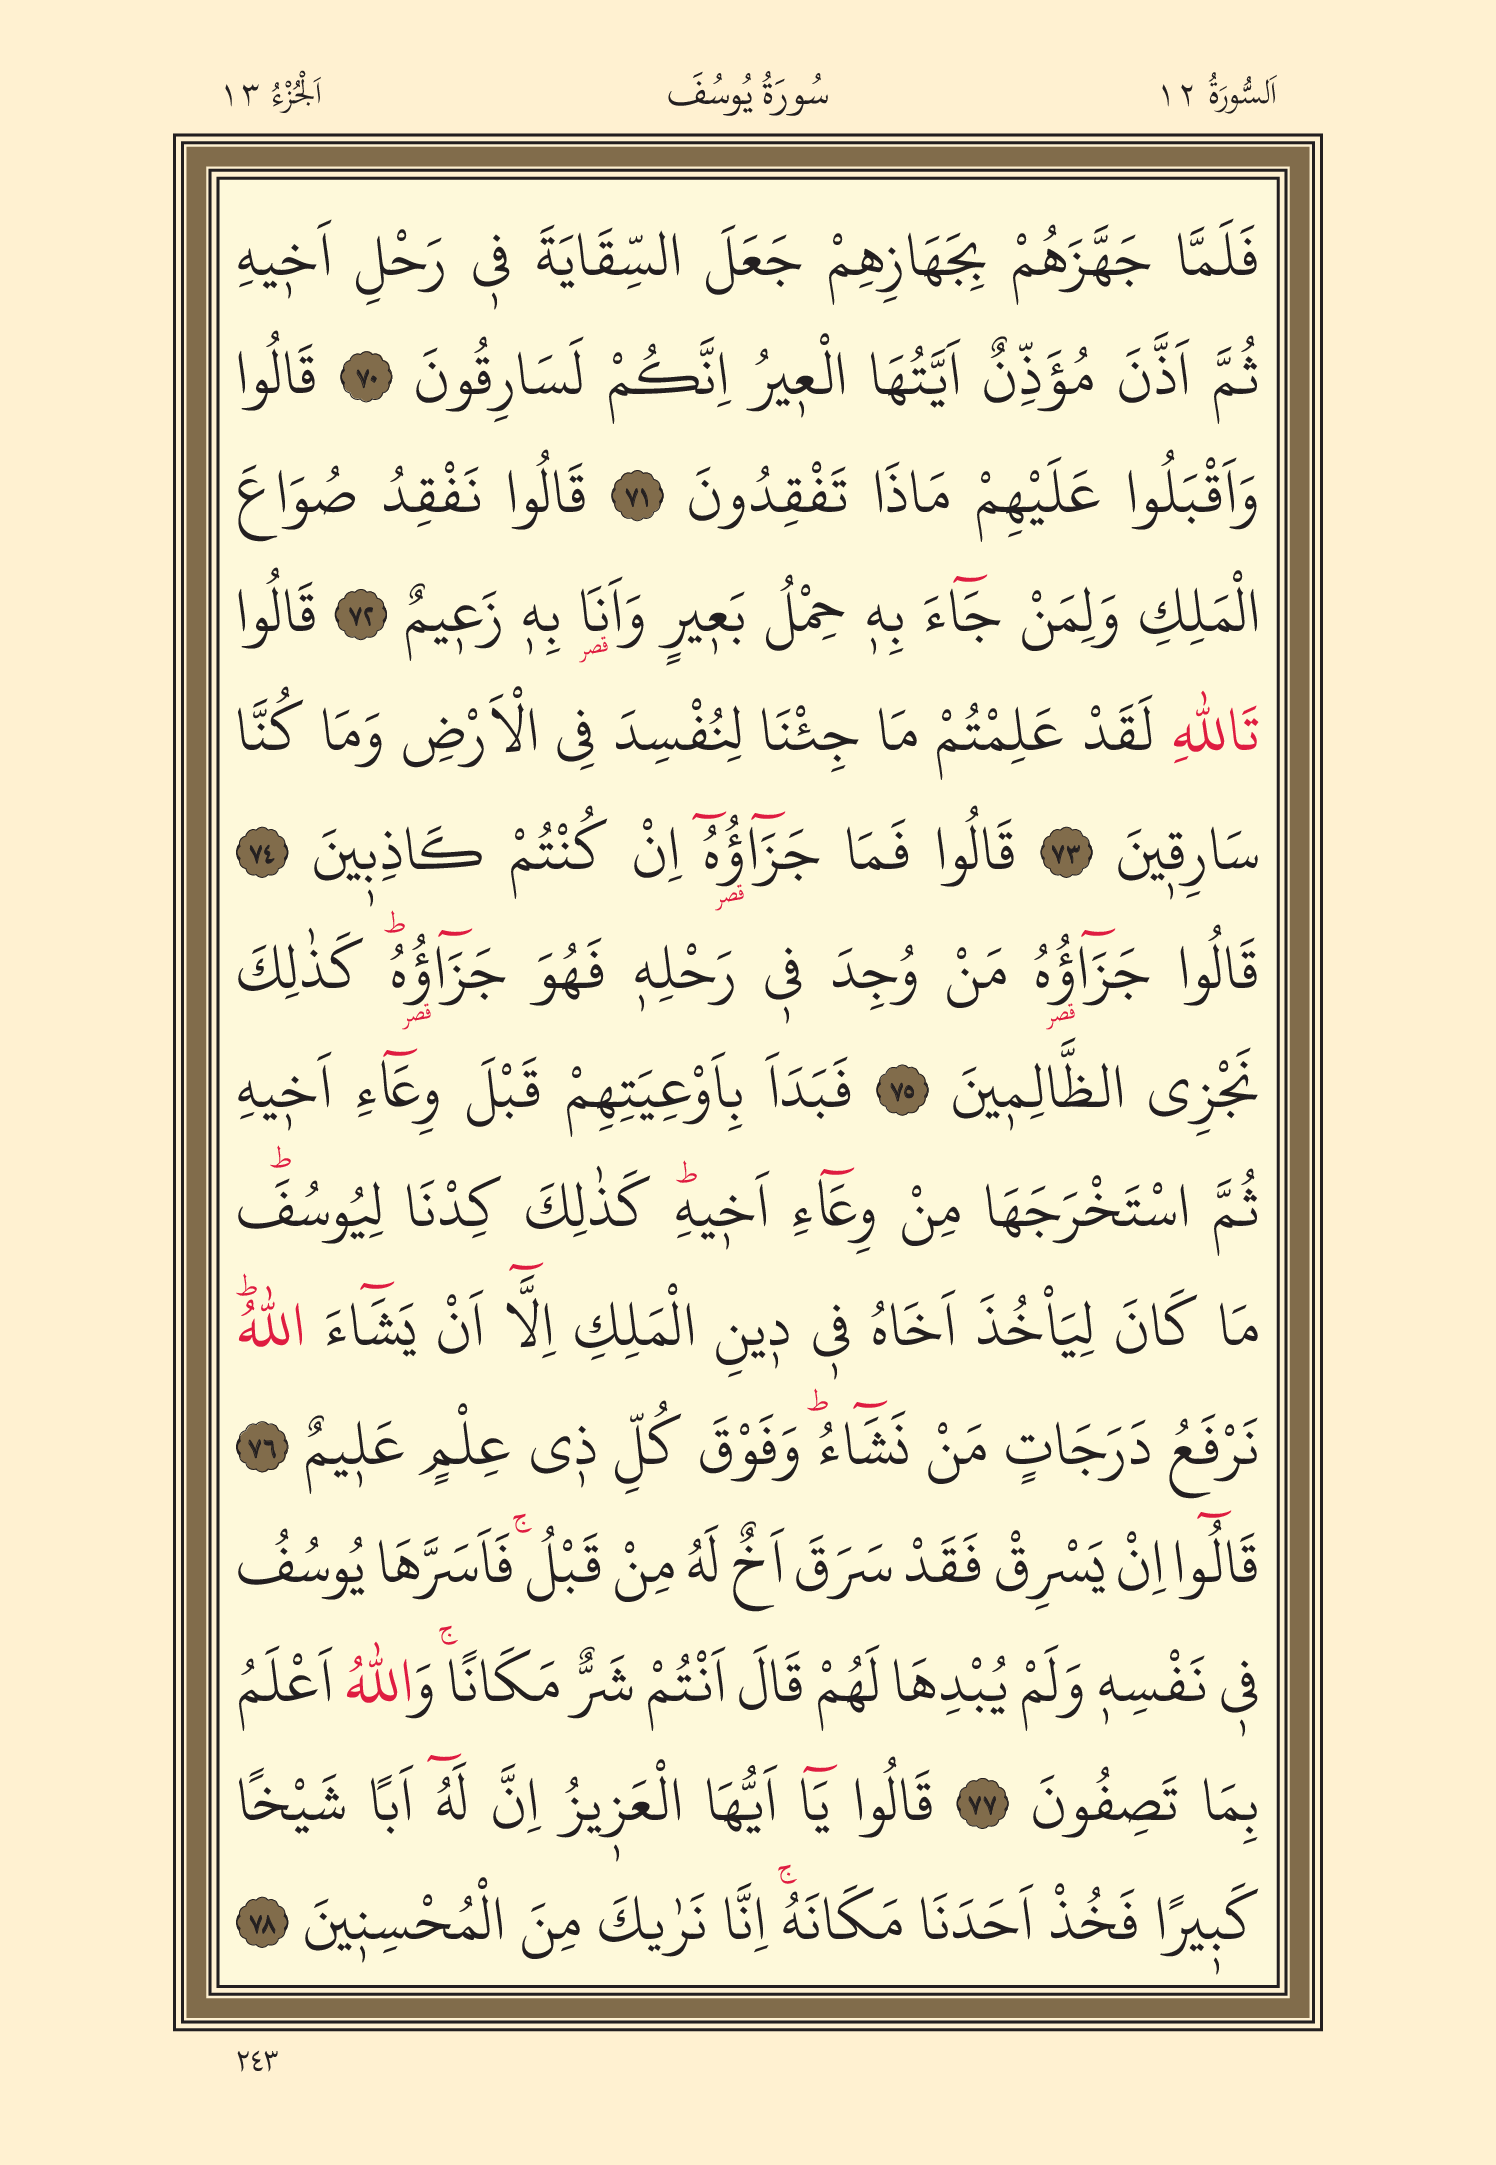 اَلسُّورَةُ ١٢ سُورَةُ يُوسُفَ اَلْجُزْءُ ١٣
فَلَمَّا جَهَّزَهُمْ بِجَهَازِهِمْ جَعَلَ السِّقَايَةَ ف۪ي رَحْلِ اَخ۪يهِ
ثُمَّ اَذَّنَ مُؤَذِّنٌ اَيَّتُهَا الْع۪يرُ اِنَّكُمْ لَسَارِقُونَ ٧٠ قَالُوا
وَاَقْبَلُوا عَلَيْهِمْ مَاذَا تَفْقِدُونَ ٧١ قَالُوا نَفْقِدُ صُوَاعَ
الْمَلِكِ وَلِمَنْ جَٓاءَ بِه۪ حِمْلُ بَع۪يرٍ وَاَنَا۬ بِه۪ زَع۪يمٌ ٧٢ قَالُوا
قصر
تَاللّٰهِ لَقَدْ عَلِمْتُمْ مَا جِئْنَا لِنُفْسِدَ فِي الْاَرْضِ وَمَا كُنَّا
سَارِق۪ينَ ٧٣ قَالُوا فَمَا جَزَٓاؤُ۬هُٓ اِنْ كُنْتُمْ كَاذِب۪ينَ ٧٤
قصر
قَالُوا جَزَٓاؤُ۬هُ مَنْ وُجِدَ ف۪ي رَحْلِه۪ فَهُوَ جَزَٓاؤُ۬هُۜ كَذٰلِكَ
قصر قصر
نَجْزِي الظَّالِم۪ينَ ٧٥ فَبَدَاَ بِاَوْعِيَتِهِمْ قَبْلَ وِعَٓاءِ اَخ۪يهِ
ثُمَّ اسْتَخْرَجَهَا مِنْ وِعَٓاءِ اَخ۪يهِۜ كَذٰلِكَ كِدْنَا لِيُوسُفَۜ
مَا كَانَ لِيَاْخُذَ اَخَاهُ ف۪ي د۪ينِ الْمَلِكِ اِلَّٓا اَنْ يَشَٓاءَ اللّٰهُۜ
نَرْفَعُ دَرَجَاتٍ مَنْ نَشَٓاءُۜ وَفَوْقَ كُلِّ ذ۪ي عِلْمٍ عَل۪يمٌ ٧٦
قَالُٓوا اِنْ يَسْرِقْ فَقَدْ سَرَقَ اَخٌ لَهُ مِنْ قَبْلُۚ فَاَسَرَّهَا يُوسُفُ
ف۪ي نَفْسِه۪ وَلَمْ يُبْدِهَا لَهُمْ قَالَ اَنْتُمْ شَرٌّ مَكَانًاۚ وَاللّٰهُ اَعْلَمُ
بِمَا تَصِفُونَ ٧٧ قَالُوا يَٓا اَيُّهَا الْعَز۪يزُ اِنَّ لَهُٓ اَبًا شَيْخًا
كَب۪يرًا فَخُذْ اَحَدَنَا مَكَانَهُۚ اِنَّا نَرٰيكَ مِنَ الْمُحْسِن۪ينَ ٧٨
٢٤٣